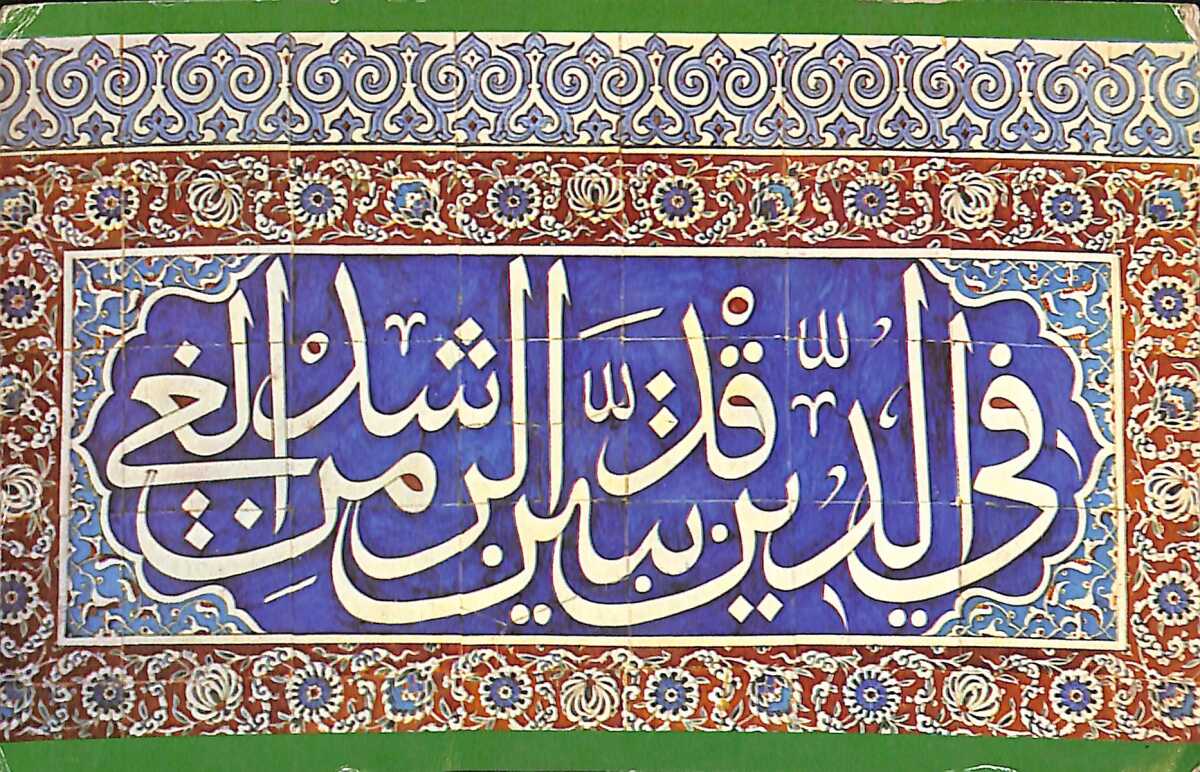 فِي الدِّينِ قَدْ تَبَيَّنَ الرُّشْدُ مِنَ الْغَيِّ